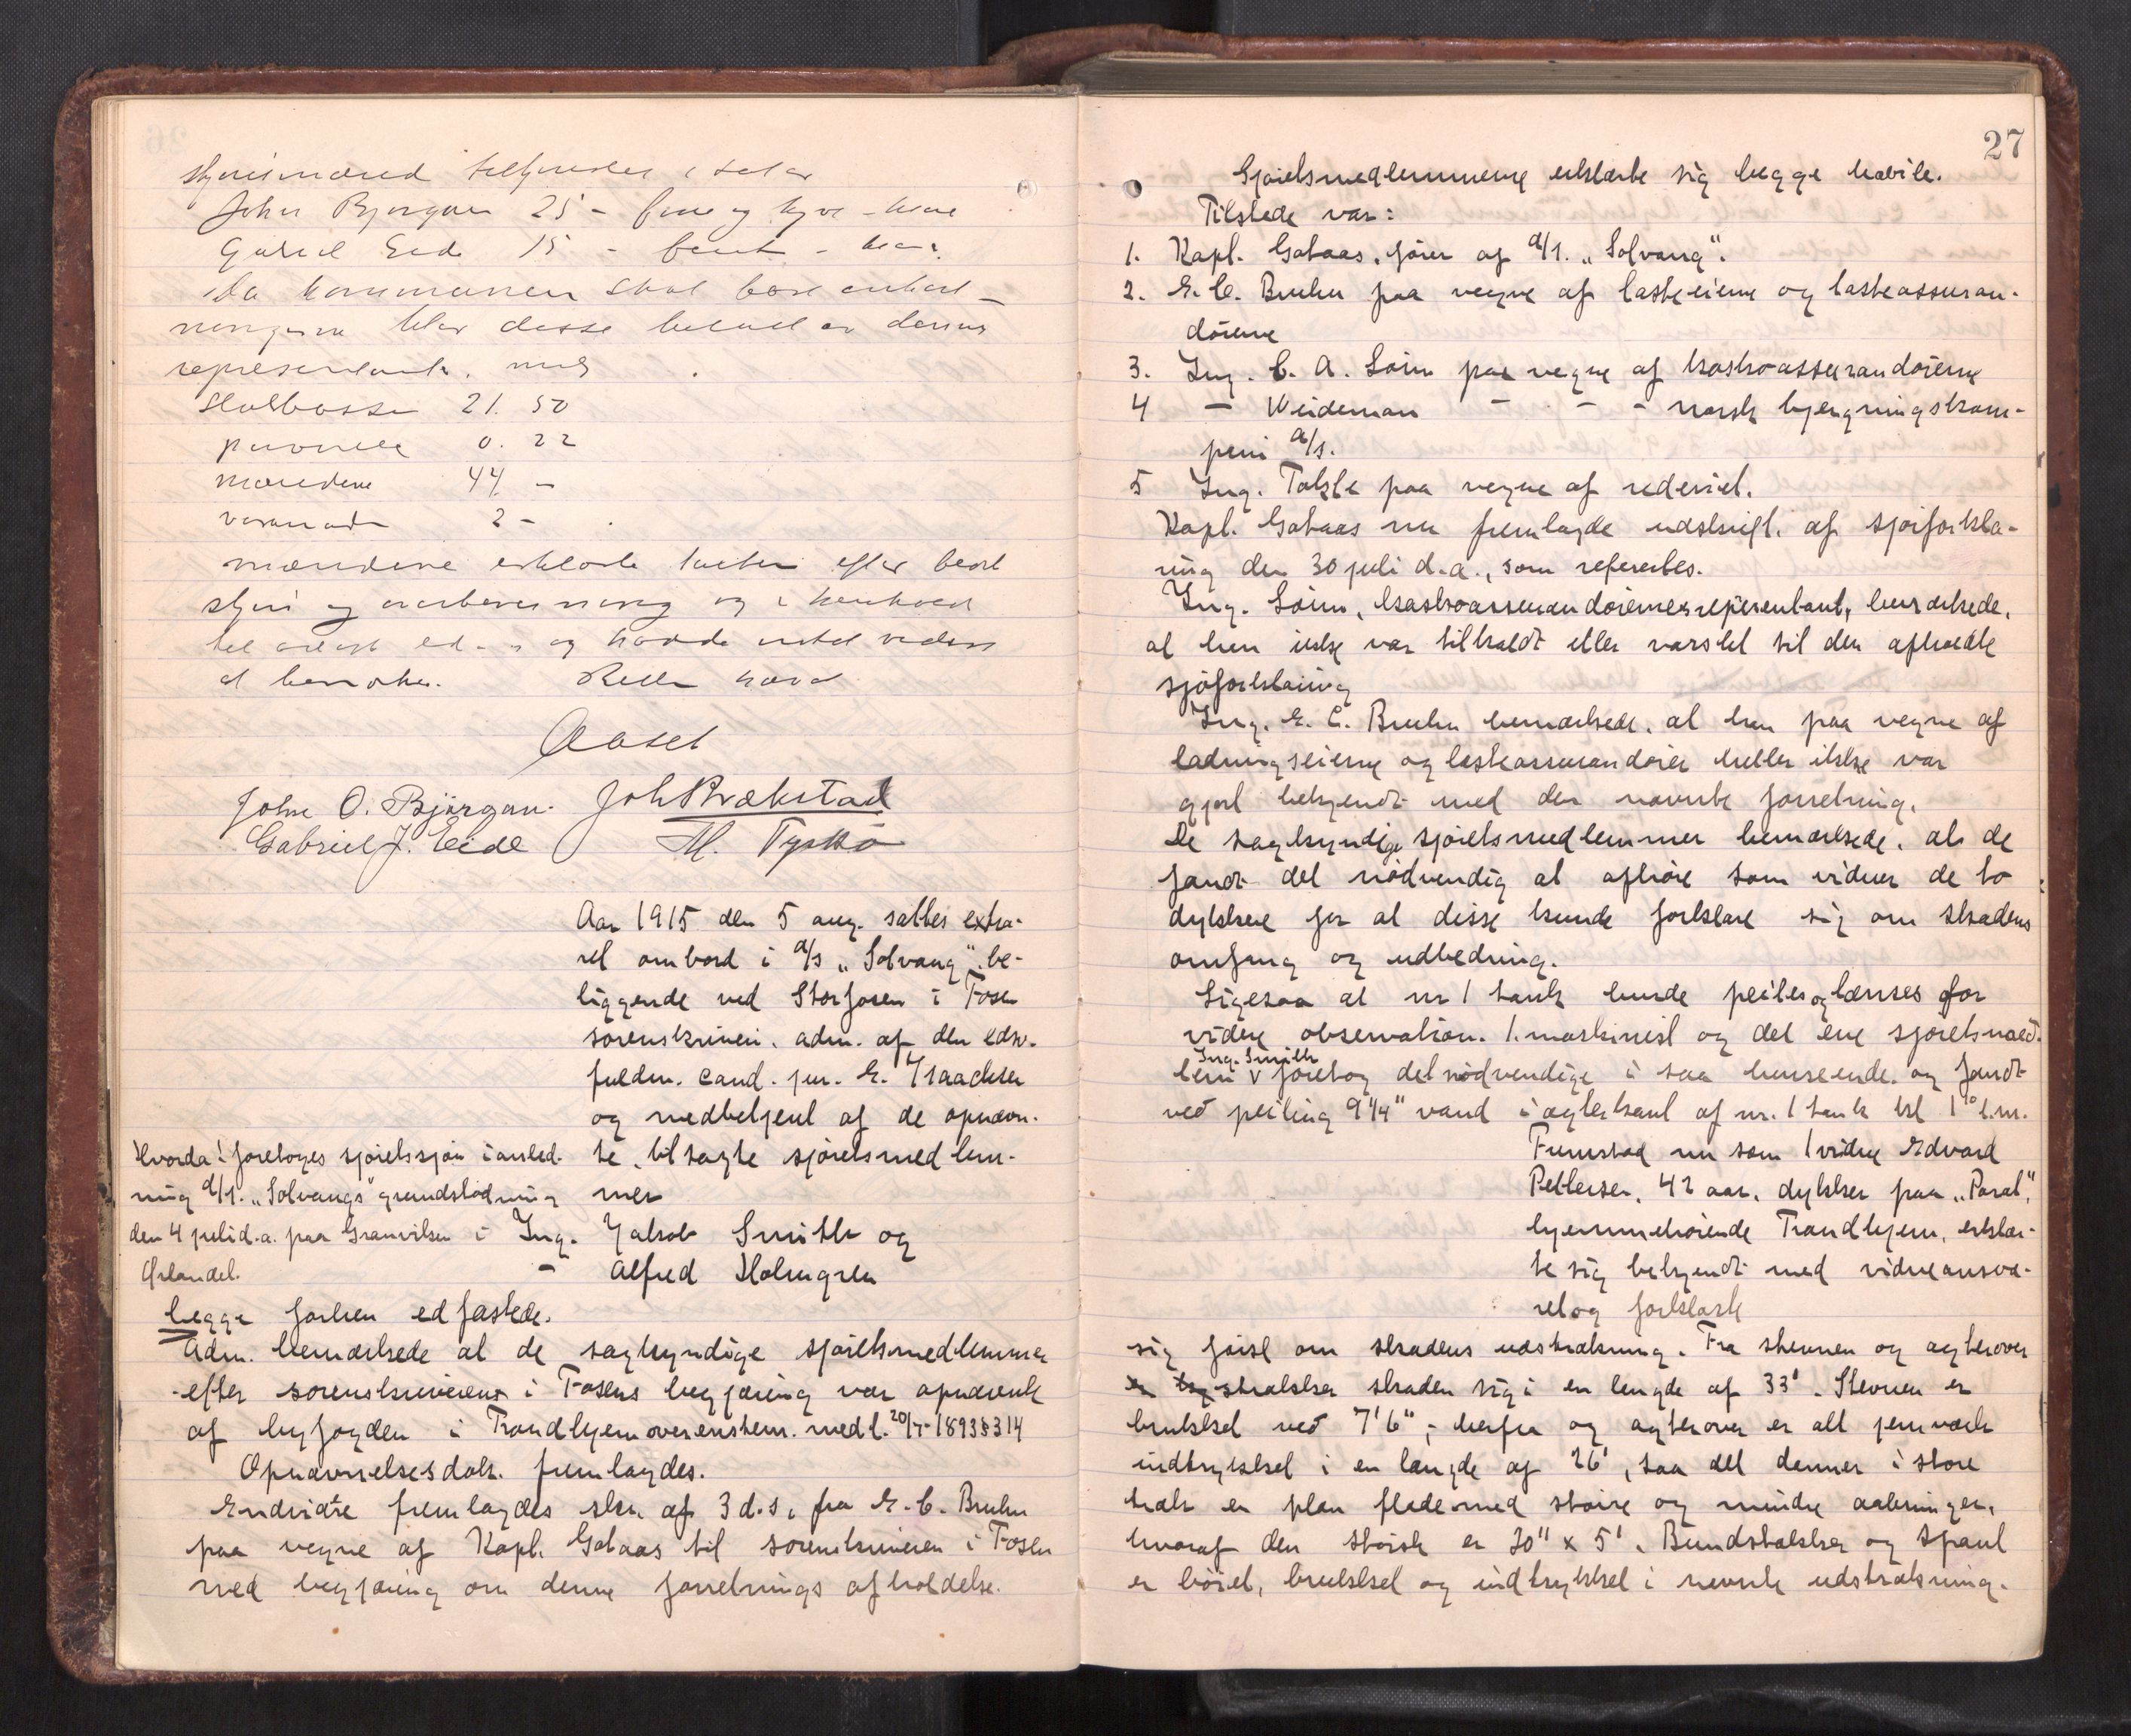 John Bjørgan 25 - fem og tyve - kroner
Gabriel Eide 15 - femten - kroner
Da kommunen skal bære omkost-
ningerne blev disse betalt av dennes
representant, med
Statskassen 21. 50
0. 22
mændene 44 -
2 -
mændene erklærte efter bedste
og overbevisning og i henhold
til avlagt ed og havde intet videre
at bemerke. Retten hævet
Aaset
John O. Bjørgan. Joh Brækstad
Gabriel J. Eide M. Tyskø
Aar 1915 den 5 aug. sattes extra-
ret ombord i d/s „Solvang" be-
liggende ved Storfosen i Fosen
sorenskriveri. adm. af den edsv.
fuldm. cand. jur. E. Isaachsen
og medbetjent af de opnævn-
te, tiltagte sjøretsmedlem-
mer
Ing. Jakob Smith og
— Alfred Holmgren
Hvorda! foretoges sjøretssjøn i anled-
ning d/s. „Solvangs" grundstødning
den 4 juli d.a. paa Granvilsen i
Ørlandet.
begge forhen edfæstede.
Adm. bemærkede at de sagkyndige sjøretsmedlemmer
efter sorenskriveren i Fosens begjæring var opnævnte
af byfogden i Trondhjem overenstem. med l. 20/7-1893 § 314
Opnævnelsesdok. fremlagdes.
Endvidre fremlagdes skr. af 3 d.s. fra E. C. Bruhn
paa vegne af Kapt. Gotaas til sorenskriveren i Fosen
med begjæring om denne forretnings afholdelse.
27
Sjøretsmedlemmerne erklærte sig begge habile.
Tilstede var:
1. Kapt. Gotaas, fører af d/s. „Solvang".
2. E. C. Bruhn paa vegne af lasteeierne og lasteassuran-
dørerne
3. Ing. C. A. Lørn paa vegne af kaskoassurandørerne
4 — Weideman — — — norsk bjergningskom-
pani a/s.
5 Ing. Tokle paa vegne af rederiet.
Kapt. Gotaas nu fremlagde udskrift. af sjøforkla-
ring den 30 juli d.a., som refereertes.
Ing. Lørn, kaskoassurandørernes representant, bemærkede,
at han ikke var tilkaldt eller varslet til den afholdte
sjøforklaring
Ing. E. C. Bruhn bemærkede, at han paa vegne af
ladningseierne og lasteassurandører heller ikke var
gjort bekjendt med den nævnte forretning.
De sagkyndige sjøretsmedlemmer bemærkede, at de
fandt det nødvendig at afhøre som vidner de to
dykkere for at disse kunde forklare sig om skadens
omfang og udbedring.
Ligesaa at nr 1 tank burde peiles og lænses for
videre observation. 1. maskinist og det ene sjøretsmed-
Ing. Smith
lem v foretog det nødvendige i saa henseende og fandt
ved peiling 9 1/4" vand i agterkant af nr. 1 tank kl 1 10 e.m.
Fremstod nu som 1 vidne Edvard
Pettersen, 42 aar, dykker paa „Parat",
hjemmehørende Trondhjem, erklær-
te sig bekjendt med vidneansva-
ret og forklarte
sig først om skadens udstrækning. Fra stevnen og agterover
strækker skaden sig i en lengde af 33'. Stevnen er
brukket ved 7'6", herfra og agterover er alt jernværk
indtrykket i en længde af 26', saa det danner i store
træk en plan flade med større og mindre aabninger,
hvoraf den største er 20" x 5'. Bundstokker og spant
er bøiet, brukket og indtrykket i nevnte udstrækning.